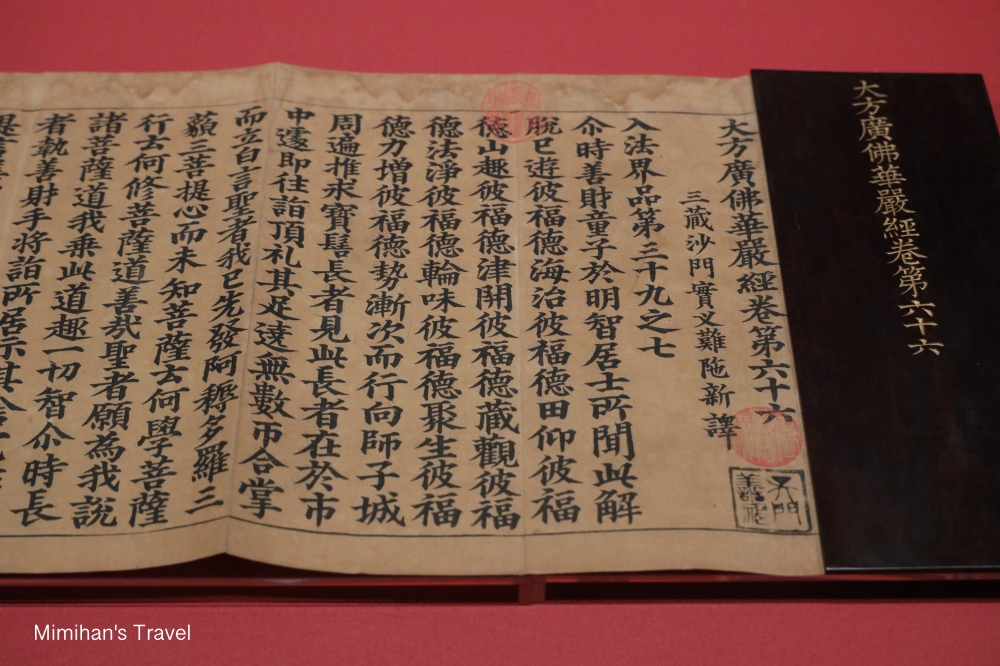 大方廣佛華嚴經卷第六十六
大方廣佛華嚴經卷第六十六
三藏沙門實叉難陁新譯
入法界品第三十九之七
尒時善財童子於明智居士所聞此解
脫已遊彼福德海治彼福德田仰彼福
德山趣彼福德津開彼福德藏觀彼福
德法淨彼福德輪味彼福德聚生彼福
德力增彼福德勢漸次而行向師子城
周遍推求寶髻長者見此長者在於市
中遽即往詣頂礼其足遶無數帀合掌
而立白言聖者我已先發阿耨多羅三
藐三菩提心而未知菩薩云何學菩薩
行云何修菩薩道善哉聖者願為我說
諸菩薩道我乘此道趣一切智尒時長
者執善財手將詣所居示其
Mimihan's Travel